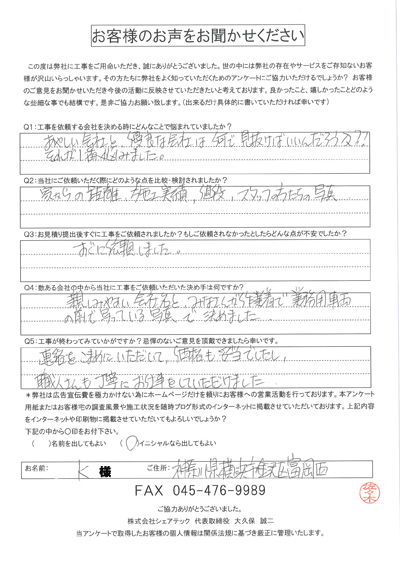 お客様のお声をお聞かせください
この度は弊社に工事をご用命いただき、誠にありがとうございました。世の中には弊社の存在やサービスをご存知ないお客
様が沢山いらっしゃいます。その方たちに弊社をよく知っていただくためのアンケートにご協力いただけるでしょうか? お客様
のご意見をお聞かせいただき今後の活動に反映させていただきたいと考えております。良かったこと、嬉しかったことどのよう
な些細な事でも結構です。是非ご協力お願い致します。(出来るだけ具体的に書いていただければ幸いです)
Q1:工事を依頼する会社を決める時にどんなことで悩まれていましたか?
あやしい会社と優良な会社は何で見抜けばいいんだろう??
それが1番悩みました。
Q2:当社にご依頼いただく際にどのような点を比較・検討されましたか?
家からの距離、施工実績、値段、スタッフの方たちの写真
Q3:お見積り提出後すぐに工事をご依頼されましたか?もしご依頼されなかったとしたらどんな点が不安でしたか?
すぐに依頼しました。
Q4:数ある会社の中から当社に工事をご依頼いただいた決め手は何ですか?
親しみやすい会社名と、みなさんが作業着で業務用車両
の前で写っている写真で決めました。
Q5:工事が終わってみていかがですか?忌憚のないご意見を頂戴できましたら幸いです。
連絡をこまめにいただいて、価格も妥当でしたし、
職人さんも丁寧にお仕事をしていただけました
*弊社は広告宣伝費を極力かけない為にホームページだけを頼りにお客様への営業活動を行っております。本アンケート
用紙またはお客様宅の調査風景や施工状況を随時ブログ形式のインターネットに掲載させていただいております。上記内容
をインターネットや印刷物に掲載させていただいてもよろしいでしょうか?
下記の中から〇印をお付下さい。
( )名前を出してもよい (〇)イニシャルなら出してもよい
お名前: K 様 ご住所: 神奈川県横浜市金沢区富岡西
FAX 045-476-9989
佐々木
ご協力ありがとうございました。
株式会社シェアテック 代表取締役 大久保 誠二
当アンケートで取得したお客様の個人情報は関係法規に基づき厳正に管理いたします。